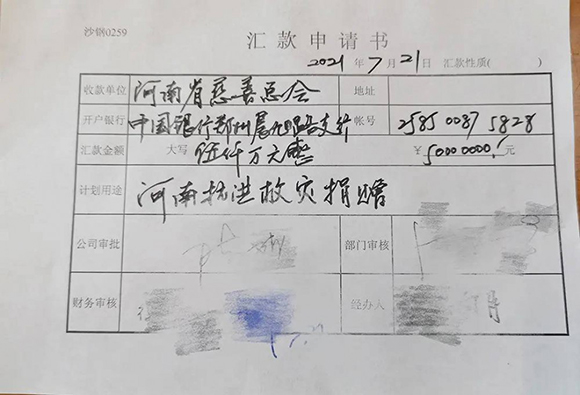 沙钢0259
汇款申请书
2021年7月21日 汇款性质( )
收款单位 河南省慈善总会 地址
开户银行 中国银行郑州 支行 帐号 2585 0087 5828
汇款金额 大写 伍仟万元整 ¥50000000.元
计划用途 河南抗洪救灾捐赠
公司审批 部门审核
财务审核 经办人